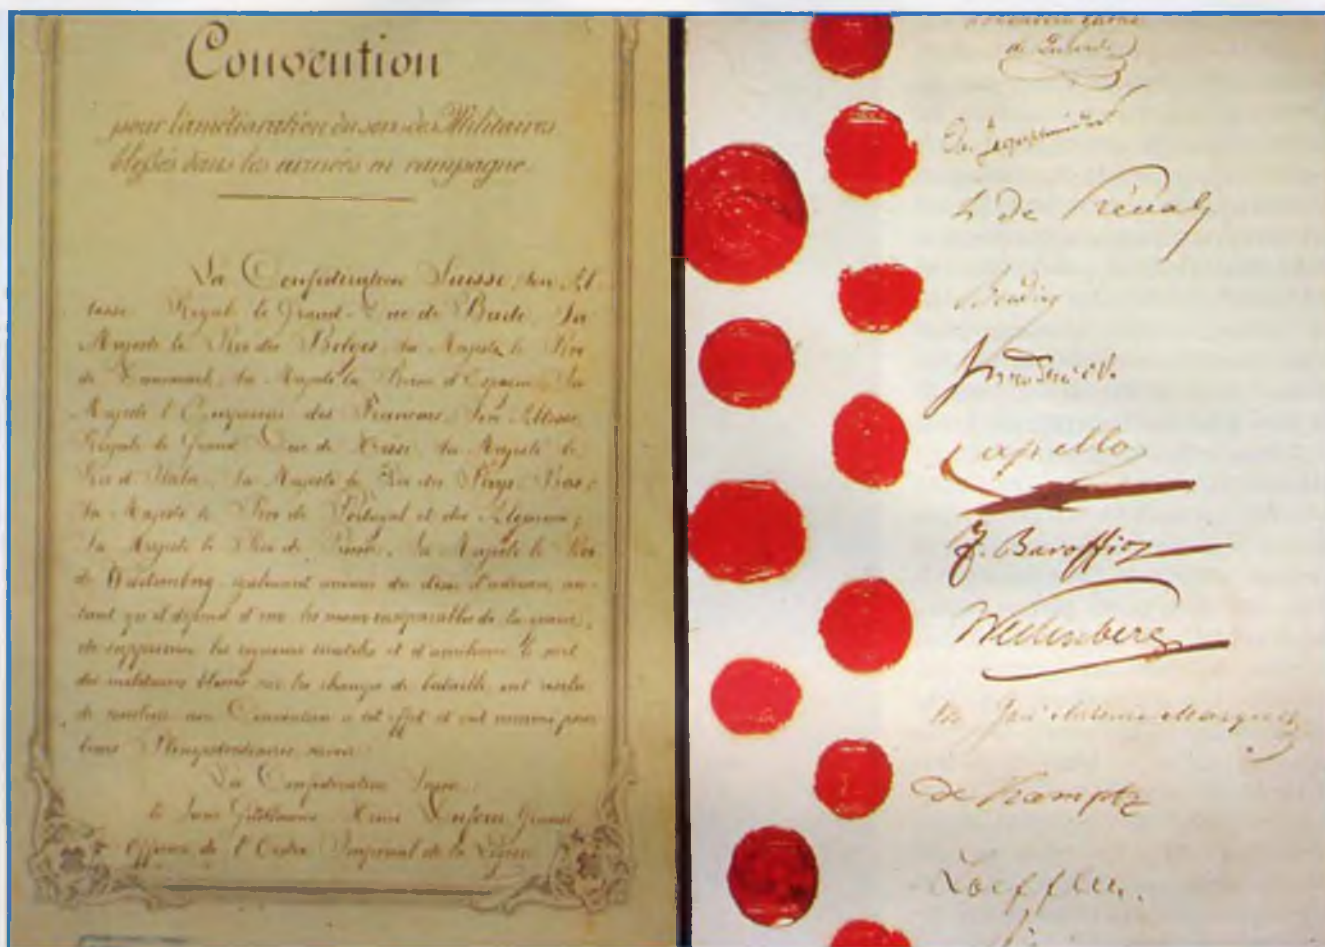 Convention
pour l'amélioration du sort des Militaires
blessés dans les armées en campagne.
La Confédération Suisse, Son Al-
tesse Royal le Grand-Duc de Bade, Sa
Majesté le Roi des Belges, Sa Majesté le Roi
de Danemark, Sa Majesté la Reine d'Espagne, Sa
Majesté l'Empereur des Français, Son Altesse
Royale le Grand Duc de Hesse, Sa Majesté le
Roi d'Italie, Sa Majesté le Roi des Pays-Bas,
Sa Majesté le Roi de Portugal et des Algarves,
Sa Majesté le Roi de Prusse, Sa Majesté le Roi
de Wurtemberg, également animés du désir d'adoucir, au-
tant qu'il dépend d'eux, les maux inséparables de la guerre,
de supprimer les rigueurs inutiles et d'améliorer le sort
des militaires blessés sur les champs de bataille, ont résolu
de conclure une Convention à cet effet et ont nommé pour
leurs Plénipotentiaires, savoir:
La Confédération Suisse:
le Sieur Guillaume Henri Dufour, Grand
Officier de l'Ordre Impérial de la Légion
de Préval
Boudier
Capello
F. Baroffio
Westenberg
José Antonio Marques
de Kamptz
Loeffler.